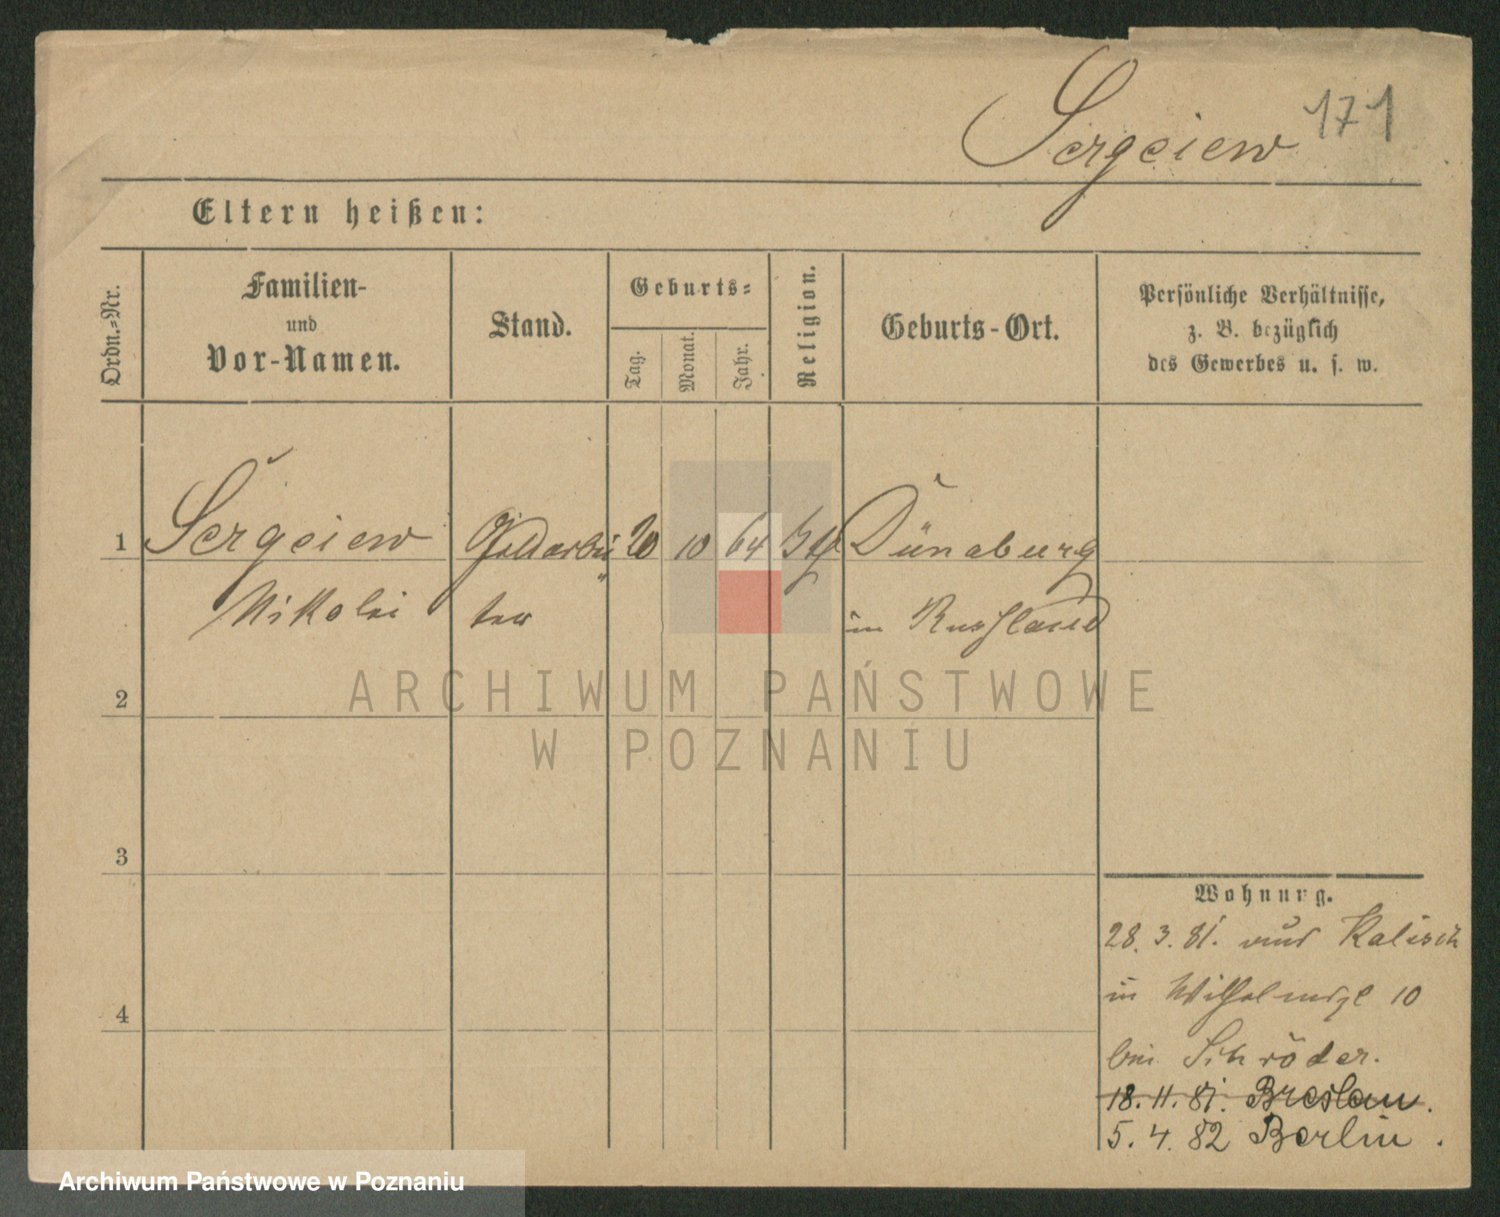 Sergeiew 171
Eltern heißen:
Ordn.=Nr.
Familien-
und
Vor-Namen.
Stand.
Geburts=
Tag.
Monat.
Jahr.
Religion.
Geburts-Ort.
Persönliche Verhältnisse,
z. B. bezüglich
des Gewerbes u. s. w.
1 Sergeiew Goldarbei 20 10 64 Dünaburg
Nikolai ter in Russland
2
3
4
Wohnung.
28.3.81. aus Kalisch
in Wilhelmspl 10
bei Schröder.
18.11.81. Breslau.
5.4.82 Berlin.
ARCHIWUM PAŃSTWOWE
W POZNANIU
Archiwum Państwowe w Poznaniu